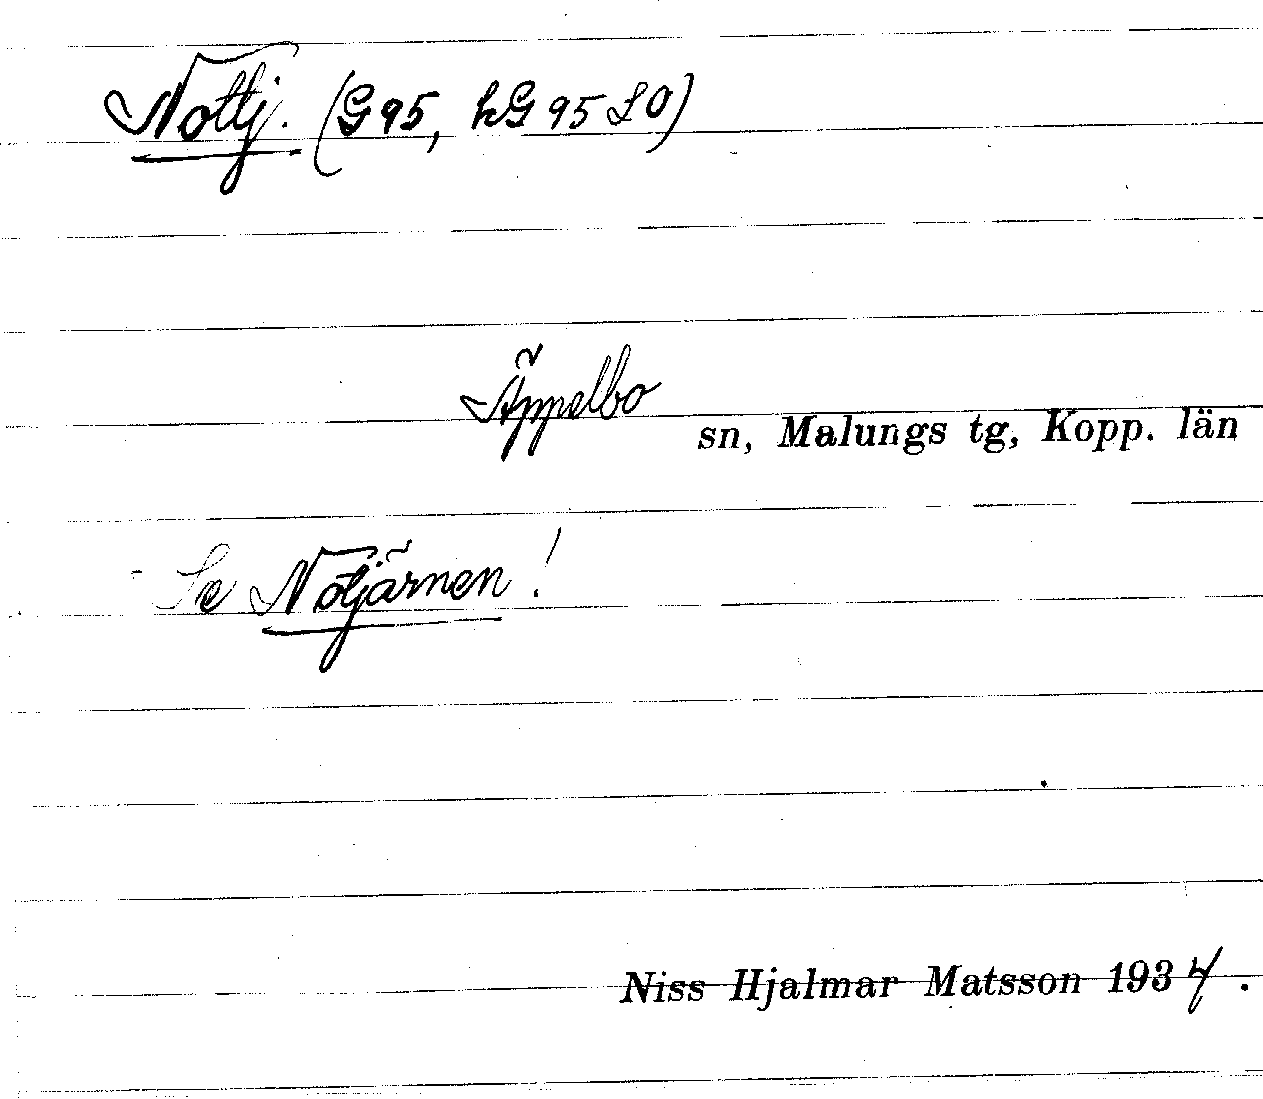 Nottj. (G95, hG 95 SO)
Äppelbo sn, Malungs tg, Kopp. län
Se Notjärnen!
Niss Hjalmar Matsson 1937.